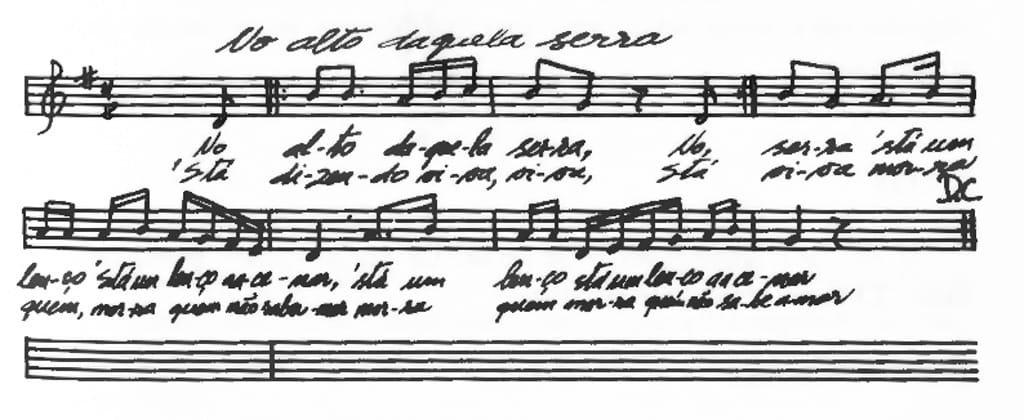 No alto daquela serra
No al-to da-que-la ser-ra, No, ser-ra 'stá um
'Stá di-zen-do vi-va, vi-va, Stá vi-va mor-ra
D.C
len-ço 'stá um len-ço a nar, 'stá um len-ço stá um len-ço
quem, mor-ra quem não mor-ra quem mor-ra não sa-be a-mar